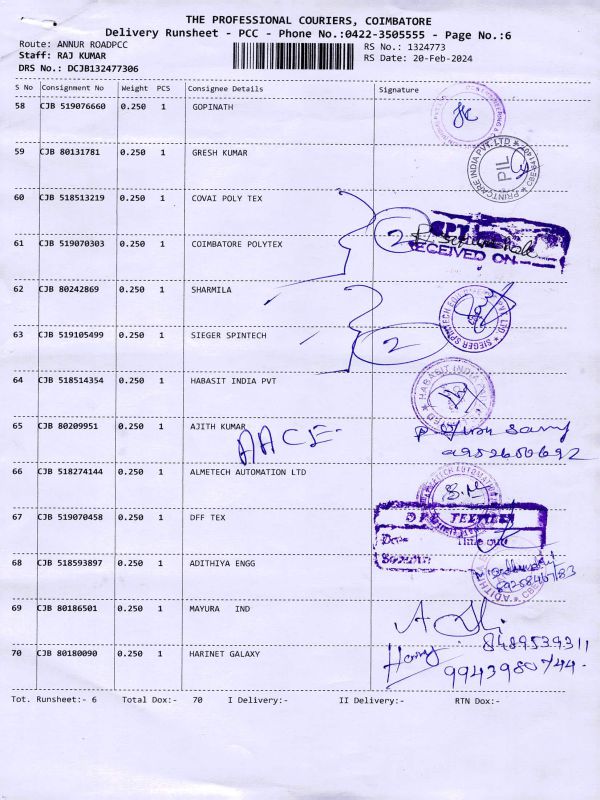 THE PROFESSIONAL COURIERS, COIMBATORE
Delivery Runsheet - PCC - Phone No.:0422-3505555 - Page No.:6
Route: ANNUR ROADPCC RS No.: 1324773
Staff: RAJ KUMAR RS Date: 20-Feb-2024
DRS No.: DCJB132477306
S No Consignment No Weight PCS Consignee Details Signature
58 CJB 519076660 0.250 1 GOPINATH
59 CJB 80131781 0.250 1 GRESH KUMAR
PRINTCARE INDIA PVT. LTD
PIL
60 CJB 518513219 0.250 1 COVAI POLY TEX
2
61 CJB 519070303 0.250 1 COIMBATORE POLYTEX
RECEIVED ON
62 CJB 80242869 0.250 1 SHARMILA
63 CJB 519105499 0.250 1 SIEGER SPINTECH
2
SIEGER SPINTECH PVT LTD
64 CJB 518514354 0.250 1 HABASIT INDIA PVT
HABASIT INDIA PVT
65 CJB 80209951 0.250 1 AJITH KUMAR
AACE
66 CJB 518274144 0.250 1 ALMETECH AUTOMATION LTD
S.M
67 CJB 519070458 0.250 1 DFF TEX
Time out
68 CJB 518593897 0.250 1 ADITHIYA ENGG
69 CJB 80186501 0.250 1 MAYURA IND
8489539311
70 CJB 80180090 0.250 1 HARINET GALAXY
9943980744
Tot. Runsheet:- 6 Total Dox:- 70 I Delivery:- II Delivery:- RTN Dox:-